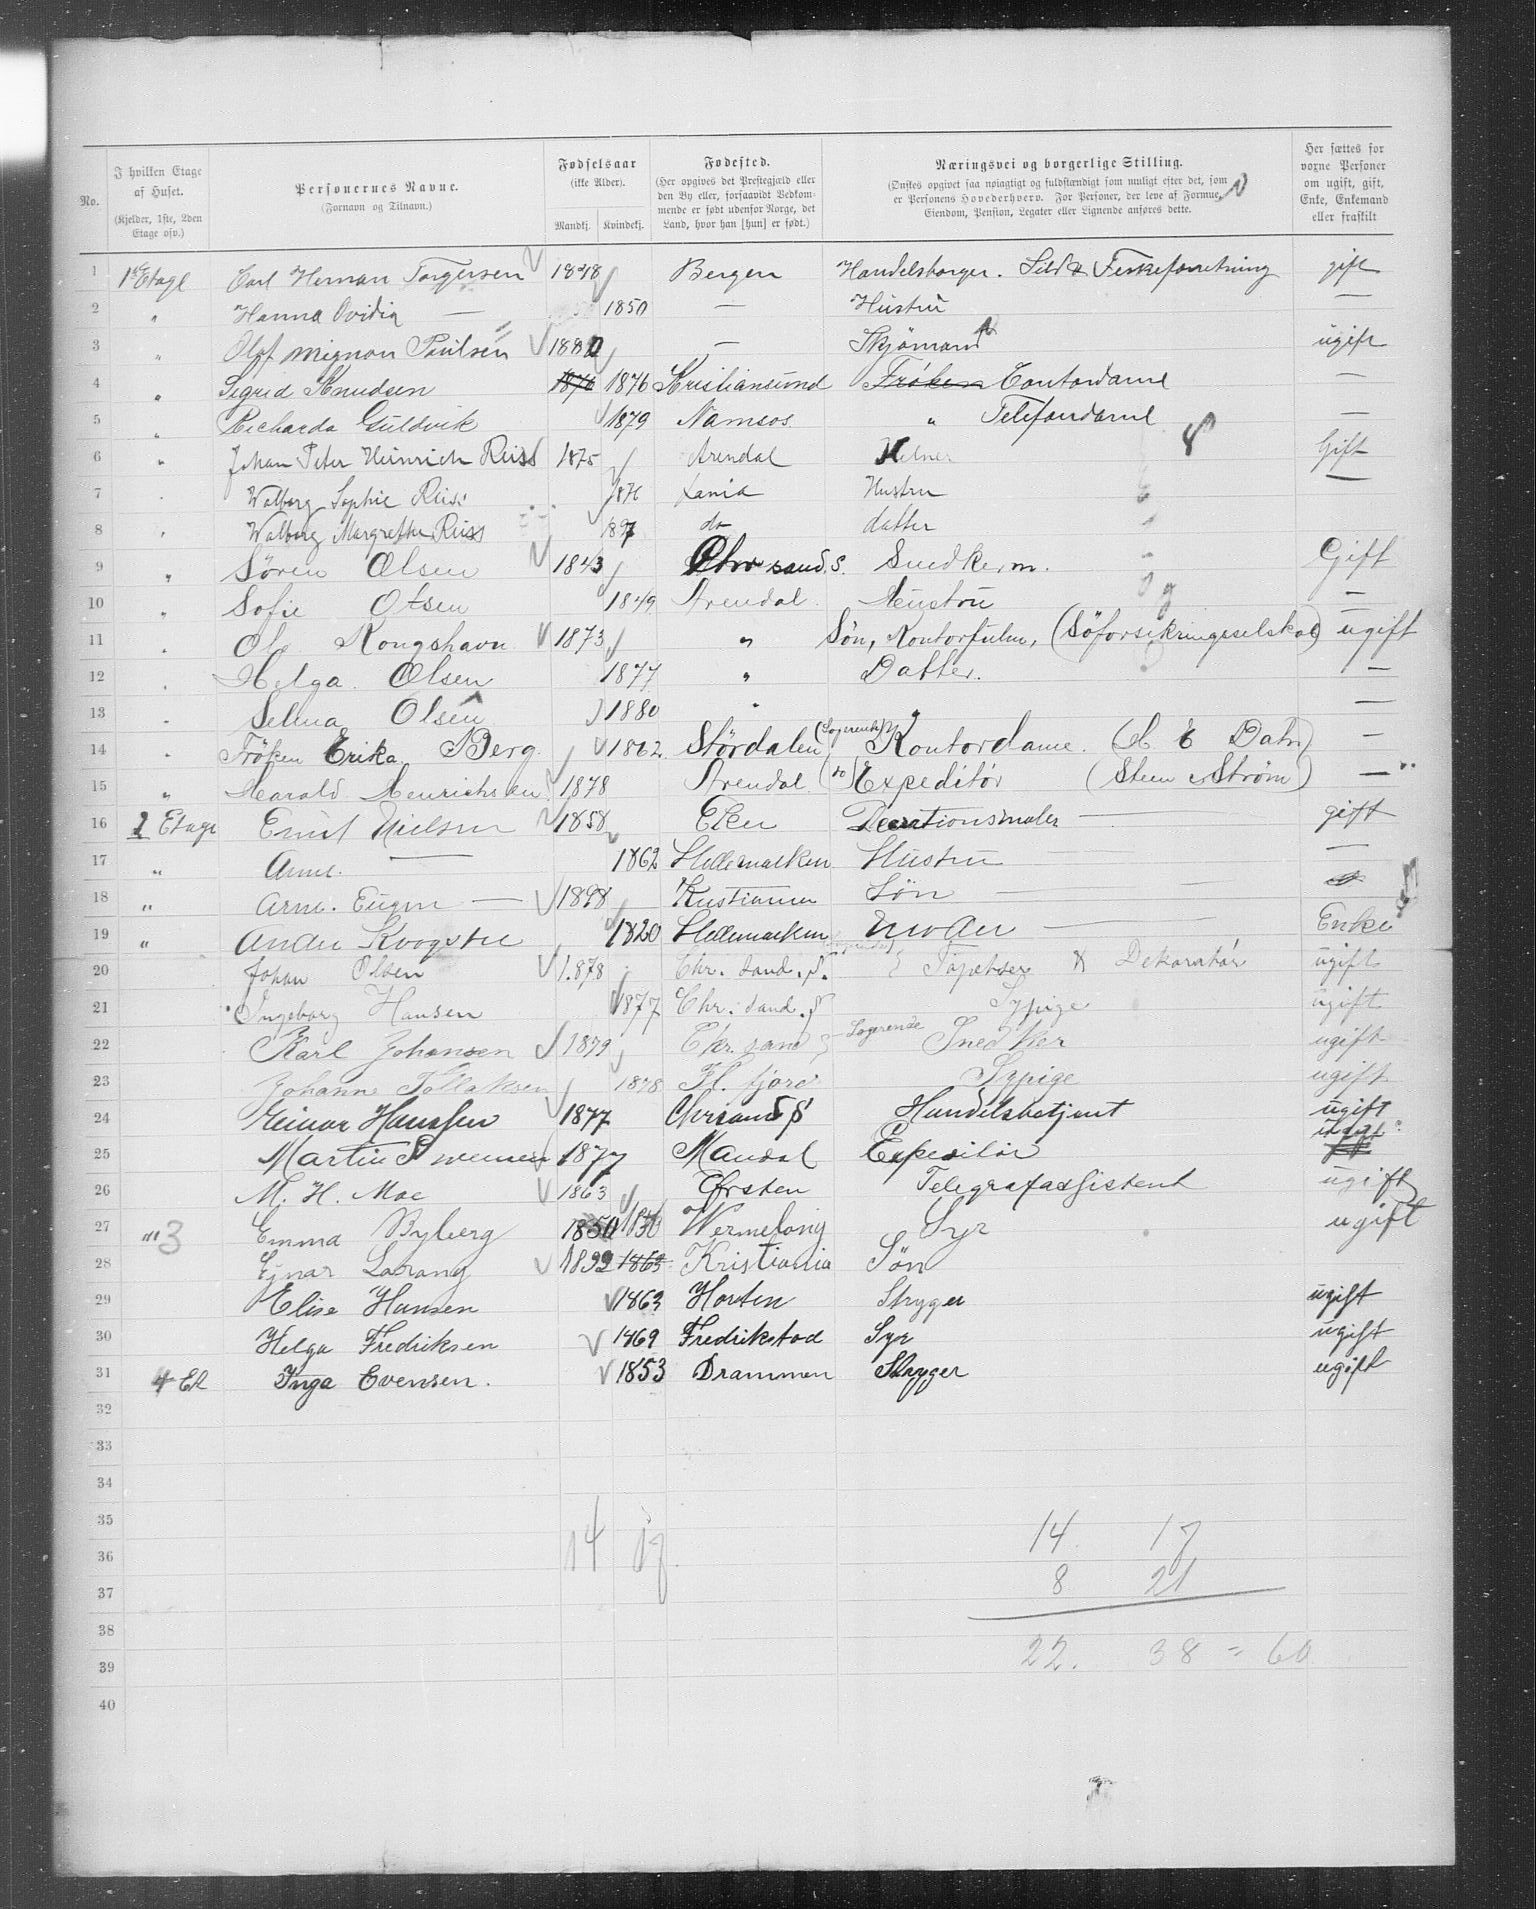 No. | I hvilken Etage af Huset. (Kjelder, 1ste, 2den Etage osv.) | Personernes Navne. (Fornavn og Tilnavn.) | Fødselsaar (ikke Alder). Mandkj. Kvindekj. | Fødested. (Her opgives det Prestegjæld eller den By eller, forsaavidt Vedkommende er født udenfor Norge, det Land, hvor han [hun] er født.) | Næringsvei og borgerlige Stilling. (Ønskes opgivet saa nøiagtigt og fuldstændigt som muligt efter det, som er Personens Hovederhverv. For Personer, der leve af Formue, Eiendom, Pension, Legater eller Lignende anføres dette. | Her sættes for voxne Personer om ugift, gift, Enke, Enkemand eller fraskilt
1 1ste Etage Carl Herman Torgersen 1848 Bergen Handelsborger. Sild & Fiskeforretning gift
2 " Hanna Ovidia — 1850 — Hustru —
3 " Olaf Mignon Poulsen 1880 — Skjömand ugift
4 " Sigrid Knudsen 1876 1876 Kristiansund Fröken Contordame —
5 " Richarda Guldvik 1879 Namsos " Telefondame —
6 " Johan Peter Heinrich Reiss 1875 Arendal Kelner Gift
7 " Walborg Sophie Reiss 1876 Hustru —
8 " Walborg Margrethe Reiss 1897 do datter
9 " Sören Olsen 1843 Chr sand S. Snedkerm. Gift
10 " Sofie Olsen 1849 Arendal. Hustru —
11 " Ole Kongshavn 1873 " Søn, Kontorfulm, (Söforsikringsselskab) ugift
12 " Helga Olsen 1877 " Datter. —
13 " Selma Olsen 1880 " " —
14 " Fröken Erika Berg 1862 Stördalen (Logerende) Kontordame. —
15 " Harald Henrichsen 1878 Arendal (do) Expeditör (Steen & Ström) —
16 2 Etage Ernst Nielsen 1858 Eker Decorationsmaler — gift
17 " — 1862 Hedemarken Hustru —
18 " Arne Eugen — 1898 Kristiania Sön —
19 " 1820 Hedemarken Moder — Enke
20 Johan Olsen 1878 Chr. sand. S. Tapetser & Dekoratör ugift
21 Ingeborg Hansen 1877 Chr. sand. S Sypige ugift
22 Karl Johansen 1879 Chr. sand Logerende Snedker ugift
23 Johanne Tollaksen 1878 Fl. fjord Sypige ugift
24 Einar Hanssen 1877 Chrisand S Handelsbetjent ugift
25 Martin 1877 Mandal Expeditör ugift
26 M. H. Moe 1863 Örsten Telegrafassistent ugift
27 " 3 Emma Byberg 1850 1850 Syr ugift
28 Ejnar 1899 1863 Kristiania Søn
29 Elise Hansen 1863 Horten Stryger ugift
30 Helga Fredriksen 1869 Fredrikstad Syr ugift
31 4 Et Inga Evensen. 1853 Drammen Stryger ugift
32
33
34
35 14 17 14 17
36
37 8 21
38
39 22. 38 = 60
40